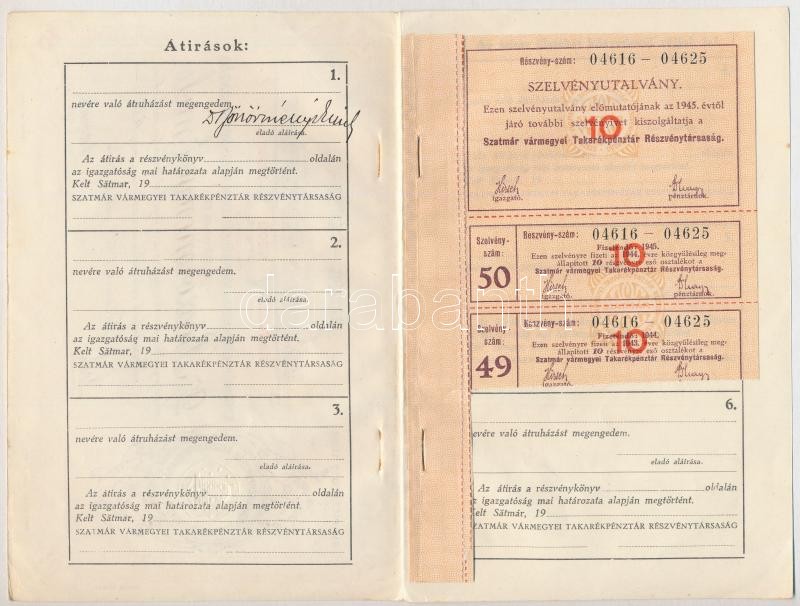 Átirások:
1.
nevére való átruházást megengedem.
eladó aláirása.
Az átirás a részvénykönyv oldalán
az igazgatóság mai határozata alapján megtörtént.
Kelt Sătmar, 19
SZATMÁR VÁRMEGYEI TAKARÉKPÉNZTÁR RÉSZVÉNYTÁRSASÁG
2.
nevére való átruházást megengedem.
eladó aláirása.
Az átirás a részvénykönyv oldalán
az igazgatóság mai határozata alapján megtörtént.
Kelt Sătmar, 19
SZATMÁR VÁRMEGYEI TAKARÉKPÉNZTÁR RÉSZVÉNYTÁRSASÁG
3.
nevére való átruházást megengedem.
eladó aláirása.
Az átirás a részvénykönyv oldalán
az igazgatóság mai határozata alapján megtörtént.
Kelt Sătmar, 19
SZATMÁR VÁRMEGYEI TAKARÉKPÉNZTÁR RÉSZVÉNYTÁRSASÁG
Részvény-szám: 04616 - 04625
SZELVÉNYUTALVÁNY.
Ezen szelvényutalvány előmutatójának az 1945. évtől
járó további szelvényivet kiszolgáltatja a
10
Szatmár vármegyei Takarékpénztár Részvénytársaság.
Hirsch
igazgató.
pénztárnok.
Szelvény-szám:
50
Részvény-szám: 04616 - 04625
Fizetendő: 1945.
Ezen szelvényre fizeti az 1944. évre közgyülésileg meg-
állapított 10 részvényre eső osztalékot a
10
Szatmár vármegyei Takarékpénztár Részvénytársaság.
Hirsch
igazgató.
pénztárnok.
Szelvény-szám:
49
Részvény-szám: 04616 - 04625
Fizetendő: 1944.
Ezen szelvényre fizeti az 1943. évre közgyülésileg meg-
állapított 10 részvényre eső osztalékot a
10
Szatmár vármegyei Takarékpénztár Részvénytársaság.
Hirsch
6.
evére való átruházást megengedem.
eladó aláirása.
Az átirás a részvénykönyv oldalán
z igazgatóság mai határozata alapján megtörtént.
elt Sătmar, 19
SZATMÁR VÁRMEGYEI TAKARÉKPÉNZTÁR RÉSZVÉNYTÁRSASÁG
darabanth